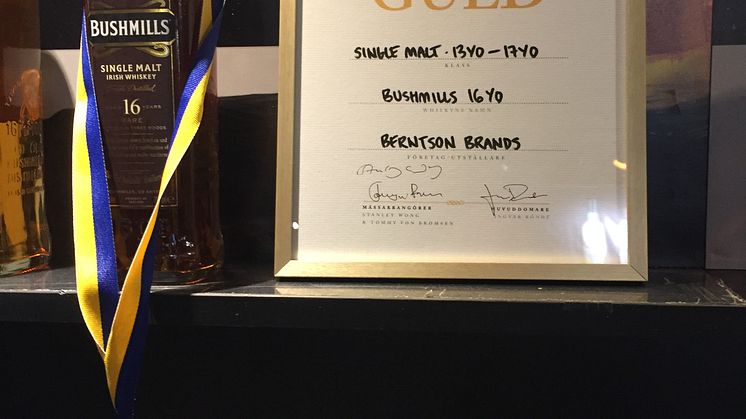 GULD
SINGLE MALT · 13YO – 17YO
KLASS
BUSHMILLS 16YO
WHISKYNS NAMN
BERNTSON BRANDS
FÖRETAG/UTSTÄLLARE
MÄSSARRANGÖRER
STANLEY WONG
& TOMMY VON BRÖMSEN
HUVUDDOMARE
INGVAR RÖNDE
BUSHMILLS
SINGLE MALT
IRISH WHISKEY
16 YEARS
RARE